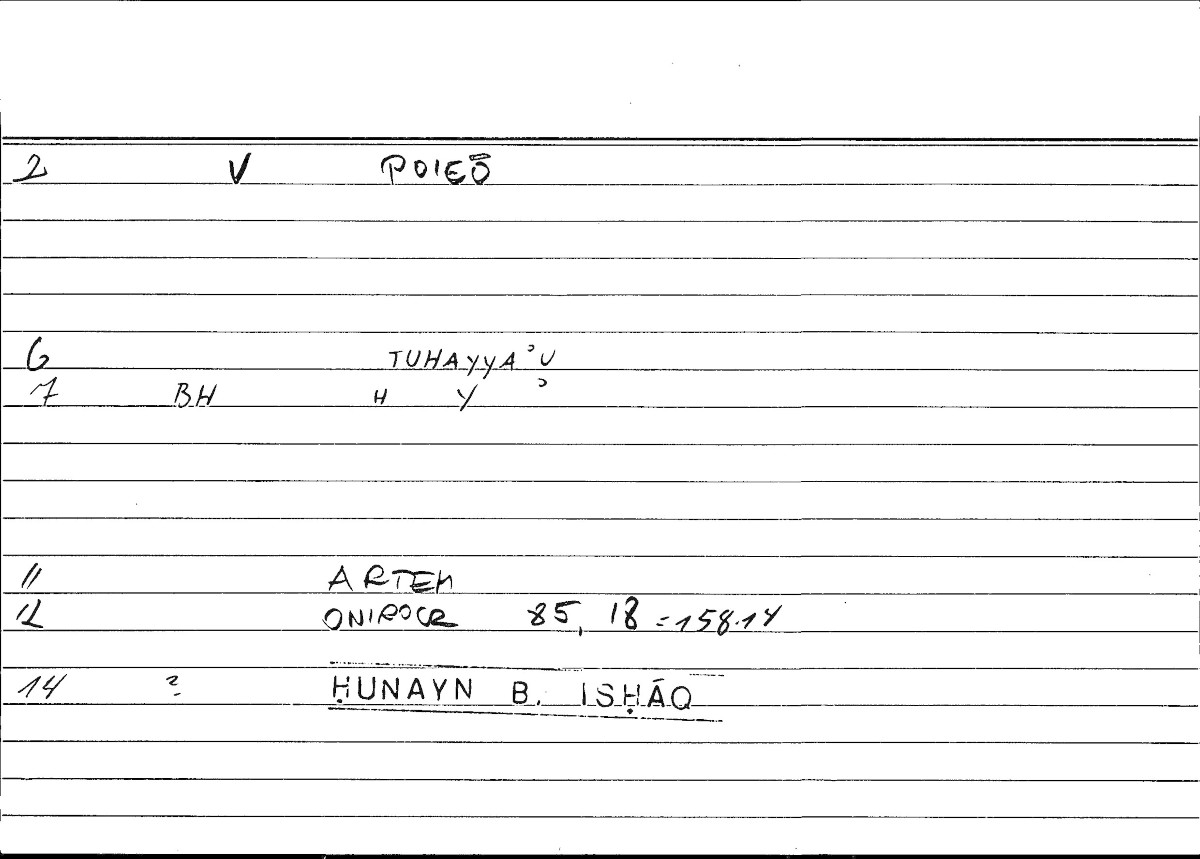 2 V POIEŌ
6 TUHAYYAʾU
7 BH H Y ʾ
11 ARTEM
12 ONIROCR 85, 18 = 158.14
14 ? ḤUNAYN B. ISḤĀQ